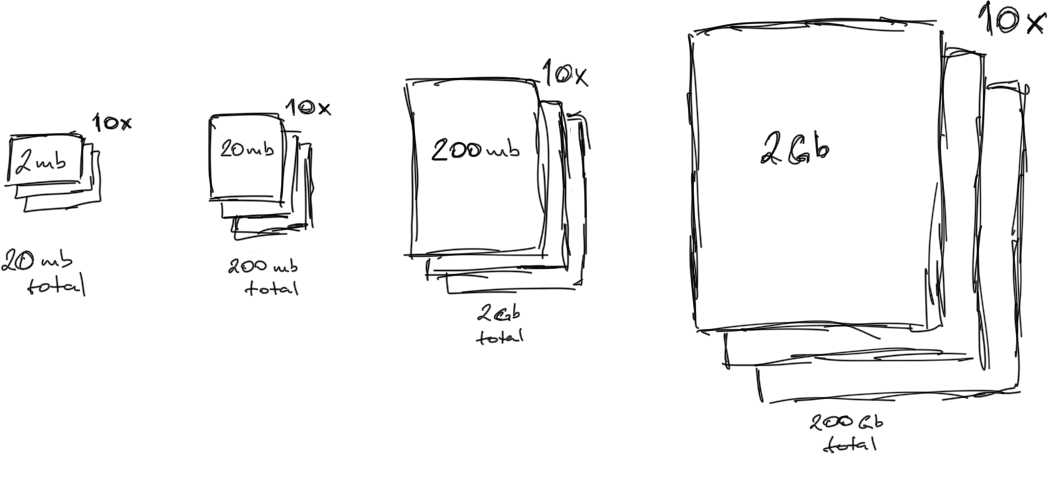 10x
2mb
20mb
total
10x
20mb
200mb
total
10x
200mb
2Gb
total
10x
2Gb
200Gb
total